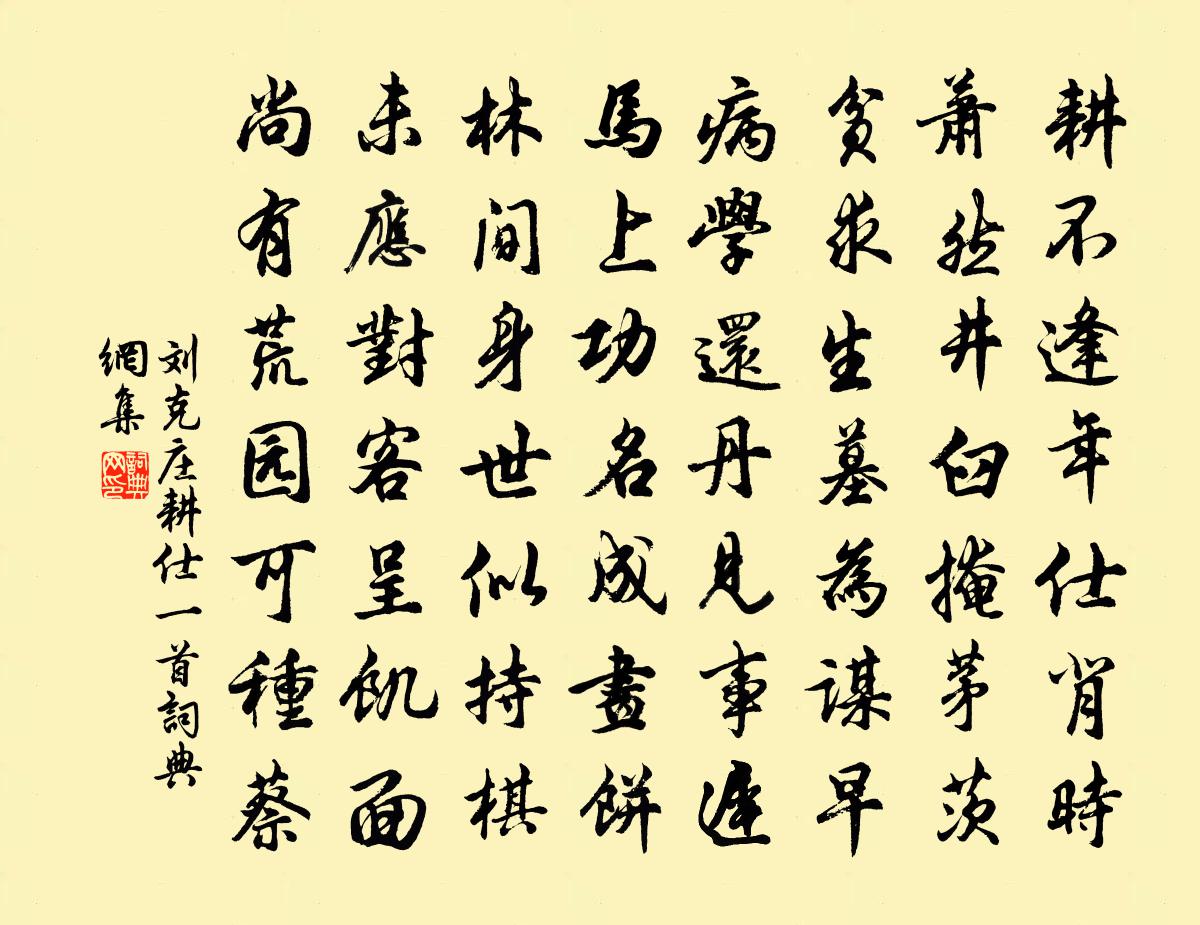 耕不逢年仕肖時
蕭然井臼掩茅茨
貧求生墓為謀早
病學還丹見事遲
馬上功名成畫餅
林間身世似持棋
未應對客呈飢面
尚有荒园可種蔡
刘克庄耕仕一首詞典
網集
詞典网印